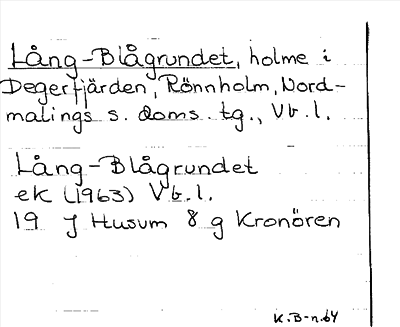 Lång-Blågrundet, holme i
Degerfjärden, Rönnholm, Nord-
malings s. doms. tg., Vb. l.
Lång-Blågrundet
ek (1963) Vb. l.
19 J Husum 8 g Kronören
K. B-n. 64